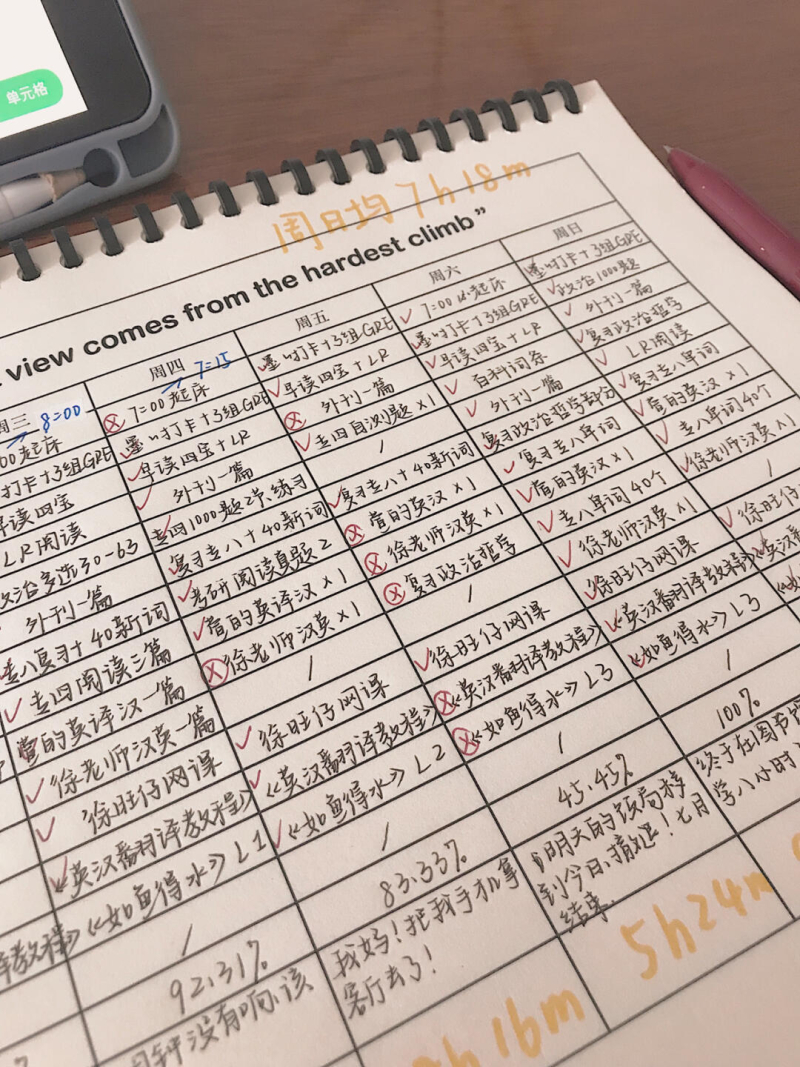 单元格
周日均 7h18m
view comes from the hardest climb”
周三 8=00
00起床
打卡+3组GRE
早读四宝
LR阅读
政治多选30-63
外刊一篇
专八复习+40新词
专四阅读三篇
萱的英译汉一篇
徐老师汉英一篇
徐旺仔网课
《英汉翻译教程》
《如鱼得水》L1
/
92.31%
没有响,该
周四 7=15
7:00起床
打卡+3组GRE
早读四宝+LR
外刊一篇
专四1000题2节.练习
复习专八+40新词
考研阅读真题2
萱的英译汉×1
徐老师汉英×1
/
徐旺仔网课
《英汉翻译教程》
《如鱼得水》L2
/
83.33%
我妈!把我手机拿
客厅去了!
h 16m
周五
打卡+3组GRE
早读四宝+LR
外刊一篇
专四自测题×1
/
复习专八+40新词
萱的英汉×1
徐老师汉英×1
复习政治哲学
/
徐旺仔网课
《英汉翻译教程》
《如鱼得水》L3
/
45.45%
明天的饭局移
到今日,尴尬!七月
结束.
5h24m
周六
7:00 起床
打卡+3组GRE
早读四宝+LR
百科词条
外刊一篇
复习政治哲学部分
复习专八单词
萱的英汉×1
专八单词40个
徐老师汉英×1
徐旺仔网课
《英汉翻译教程》
《如鱼得水》L3
/
100%
终于在周
学八小时
周日
打卡+3组GRE
政治1000题
外刊一篇
复习政治哲学
LR阅读
复习专八单词
萱的英汉×1
专八单词40个
徐老师汉英×1
/
徐旺仔